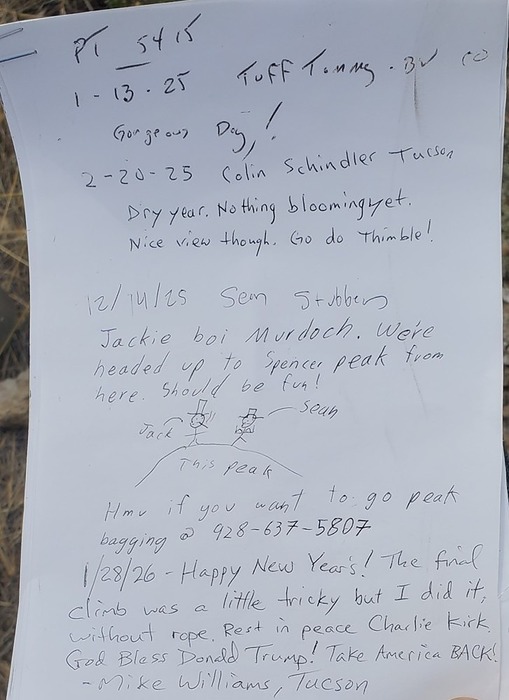 PT 5415
1-13-25 Tuff Tommy. BV CO
Gorgeous Day!
2-20-25 Colin Schindler Tucson
Dry year. Nothing blooming yet.
Nice view though. Go do Thimble!
12/14/25 Sean Stubben
Jackie boi Murdoch. We're
headed up to Spencer peak from
here. Should be fun!
Jack Sean
This peak
Hmu if you want to go peak
bagging @ 928-637-5807
1/28/26 - Happy New Year's! The final
climb was a little tricky but I did it,
without rope. Rest in peace Charlie Kirk.
God Bless Donald Trump! Take America BACK!
- Mike Williams, Tucson